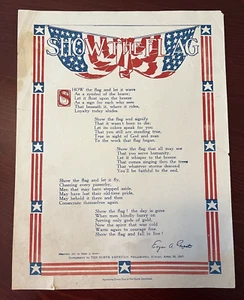 SHOW THE FLAG
SHOW the flag and let it wave
As a symbol of the brave;
Let it float upon the breeze
As a sign for each who sees
That beneath it, where it rides,
Loyalty today abides.
Show the flag and signify
That it wasn't born to die;
Let its colors speak for you
That you still are standing true,
True in sight of God and man
To the work that flag began.
Show the flag that all may see
That you serve humanity.
Let it whisper to the breeze
That comes singing through the trees
That whatever storms descend
You'll be faithful to the end.
Show the flag and let it fly,
Cheering every passerby.
Men that may have stepped aside,
May have lost their old-time pride,
May behold it there and then
Consecrate themselves again.
Show the flag! the day is gone
When men blindly hurry on
Serving only gods of gold;
Now the spirit that was cold
Warms again to courage fine.
Show the flag and fall in line!
Edgar A. Guest